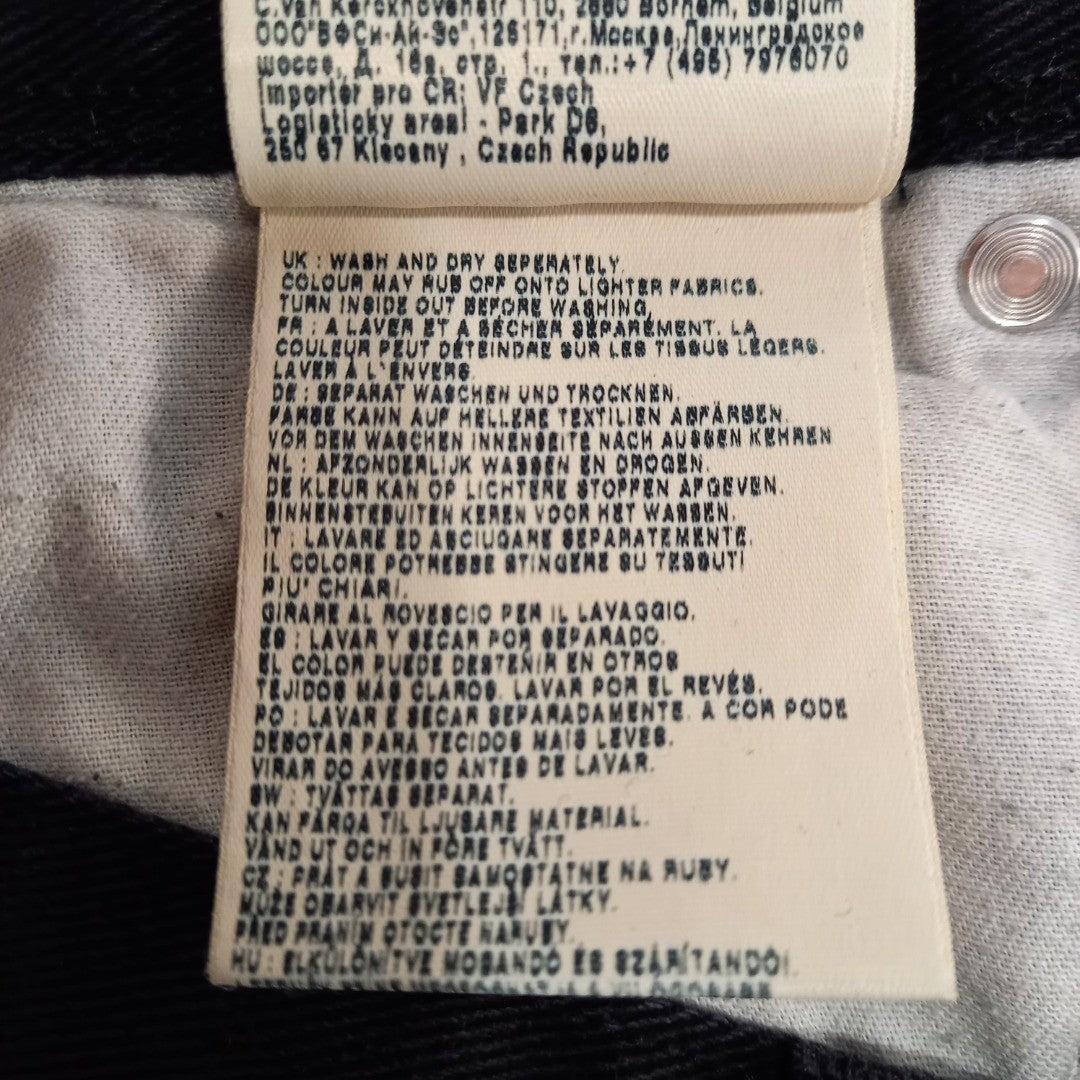 C.Van Kerckhovenstr 110, 2880 Bornem, Belgium
ООО"ВФСи-Ай-Эс",126171,г.Москва,Ленинградское
шоссе, Д. 16а, стр. 1., тел.:+7 (495) 7976070
Importer pro CR: VF Czech
Logisticky areal - Park D6,
250 67 Klecany , Czech Republic
UK : WASH AND DRY SEPERATELY.
COLOUR MAY RUB OFF ONTO LIGHTER FABRICS.
TURN INSIDE OUT BEFORE WASHING,
FR : A LAVER ET À SÉCHER SÉPARÉMENT. LA
COULEUR PEUT DÉTEINDRE SUR LES TISSUS LÉGERS.
LAVER À L'ENVERS.
DE : SEPARAT WASCHEN UND TROCKNEN.
FARBE KANN AUF HELLERE TEXTILIEN ABFÄRBEN.
VOR DEM WASCHEN INNENSEITE NACH AUSSEN KEHREN
NL : AFZONDERLIJK WASSEN EN DROGEN.
DE KLEUR KAN OP LICHTERE STOFFEN AFGEVEN.
BINNENSTEBUITEN KEREN VOOR HET WASSEN.
IT : LAVARE ED ASCIUGARE SEPARATEMENTE.
IL COLORE POTREBBE STINGERE SU TESSUTI
PIU' CHIARI.
GIRARE AL ROVESCIO PER IL LAVAGGIO.
ES : LAVAR Y SECAR POR SEPARADO.
EL COLOR PUEDE DESTEÑIR EN OTROS
TEJIDOS MÁS CLAROS. LAVAR POR EL REVÉS.
PO : LAVAR E SECAR SEPARADAMENTE. A COR PODE
DEBOTAR PARA TECIDOS MAIS LEVES.
VIRAR DO AVESSO ANTES DE LAVAR.
SW : TVÄTTAS SEPARAT.
KAN FÄRGA TIL LJUSARE MATERIAL.
VÄND UT OCH IN FÖRE TVÄTT.
CZ : PRÁT A SUSIT SAMOSTATNE NA RUBY.
MŮŽE OBARVIT SVETLEJŠÍ LÁTKY.
PŘED PRANÍM OTOCTE NARUBY.
HU : ELKÜLÖNÍTVE MOSANDÓ ÉS SZÁRÍTANDÓ!.